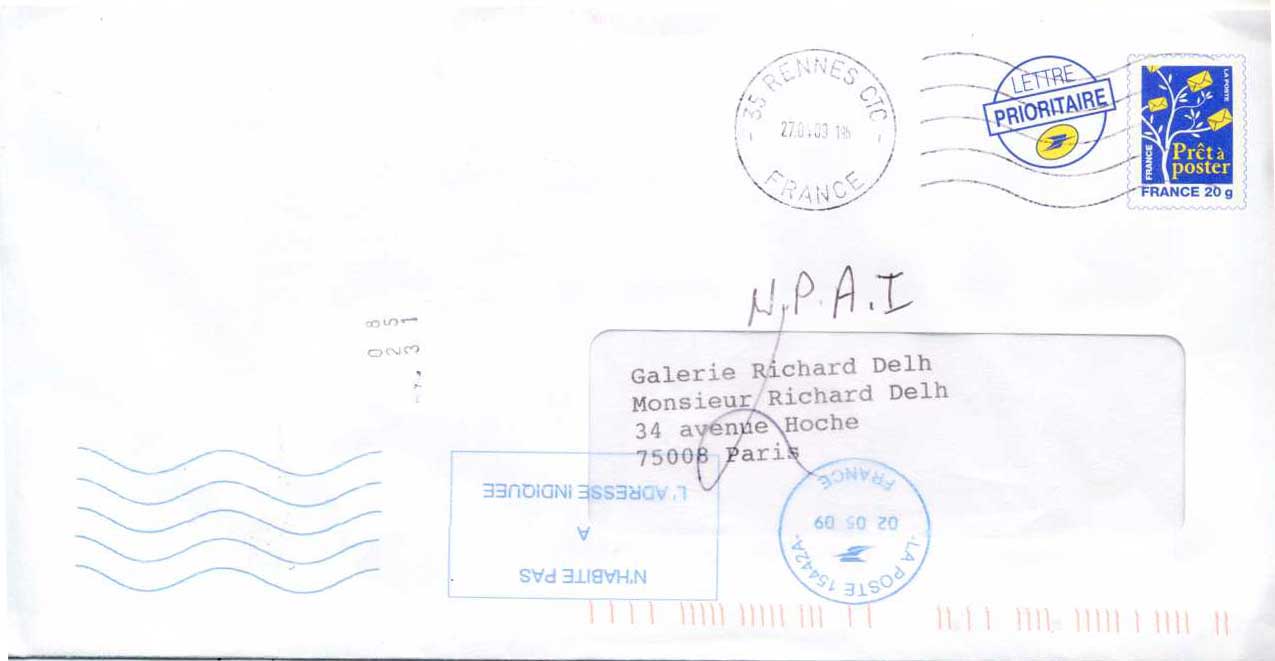 - 35 RENNES CTC -
FRANCE
LETTRE
PRIORITAIRE
LA POSTE
FRANCE
Prêt à
poster
FRANCE 20 g
N.P.A.I
Galerie Richard Delh
Monsieur Richard Delh
34 avenue Hoche
75008 Paris
N'HABITE PAS
A
L'ADRESSE INDIQUEE
.LA POSTE 15442A.
02 05 09
FRANCE